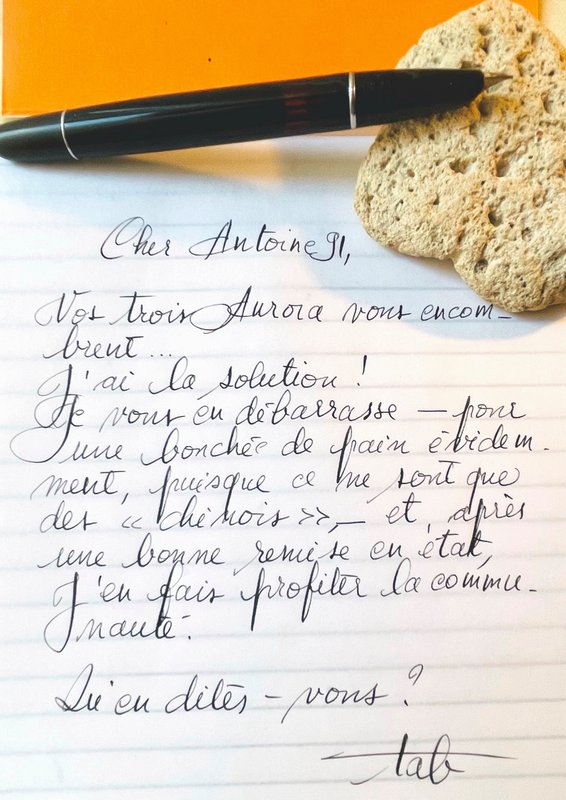 Cher Antoine 91,
Vos trois Aurora vous encom-
brent...
J'ai la solution !
Je vous en débarrasse — pour
une bouchée de pain évidem-
ment, puisque ce ne sont que
des « chinois », — et, après
une bonne remise en état,
J'en fais profiter la commu-
nauté.
Qu'en dites-vous ?
tab